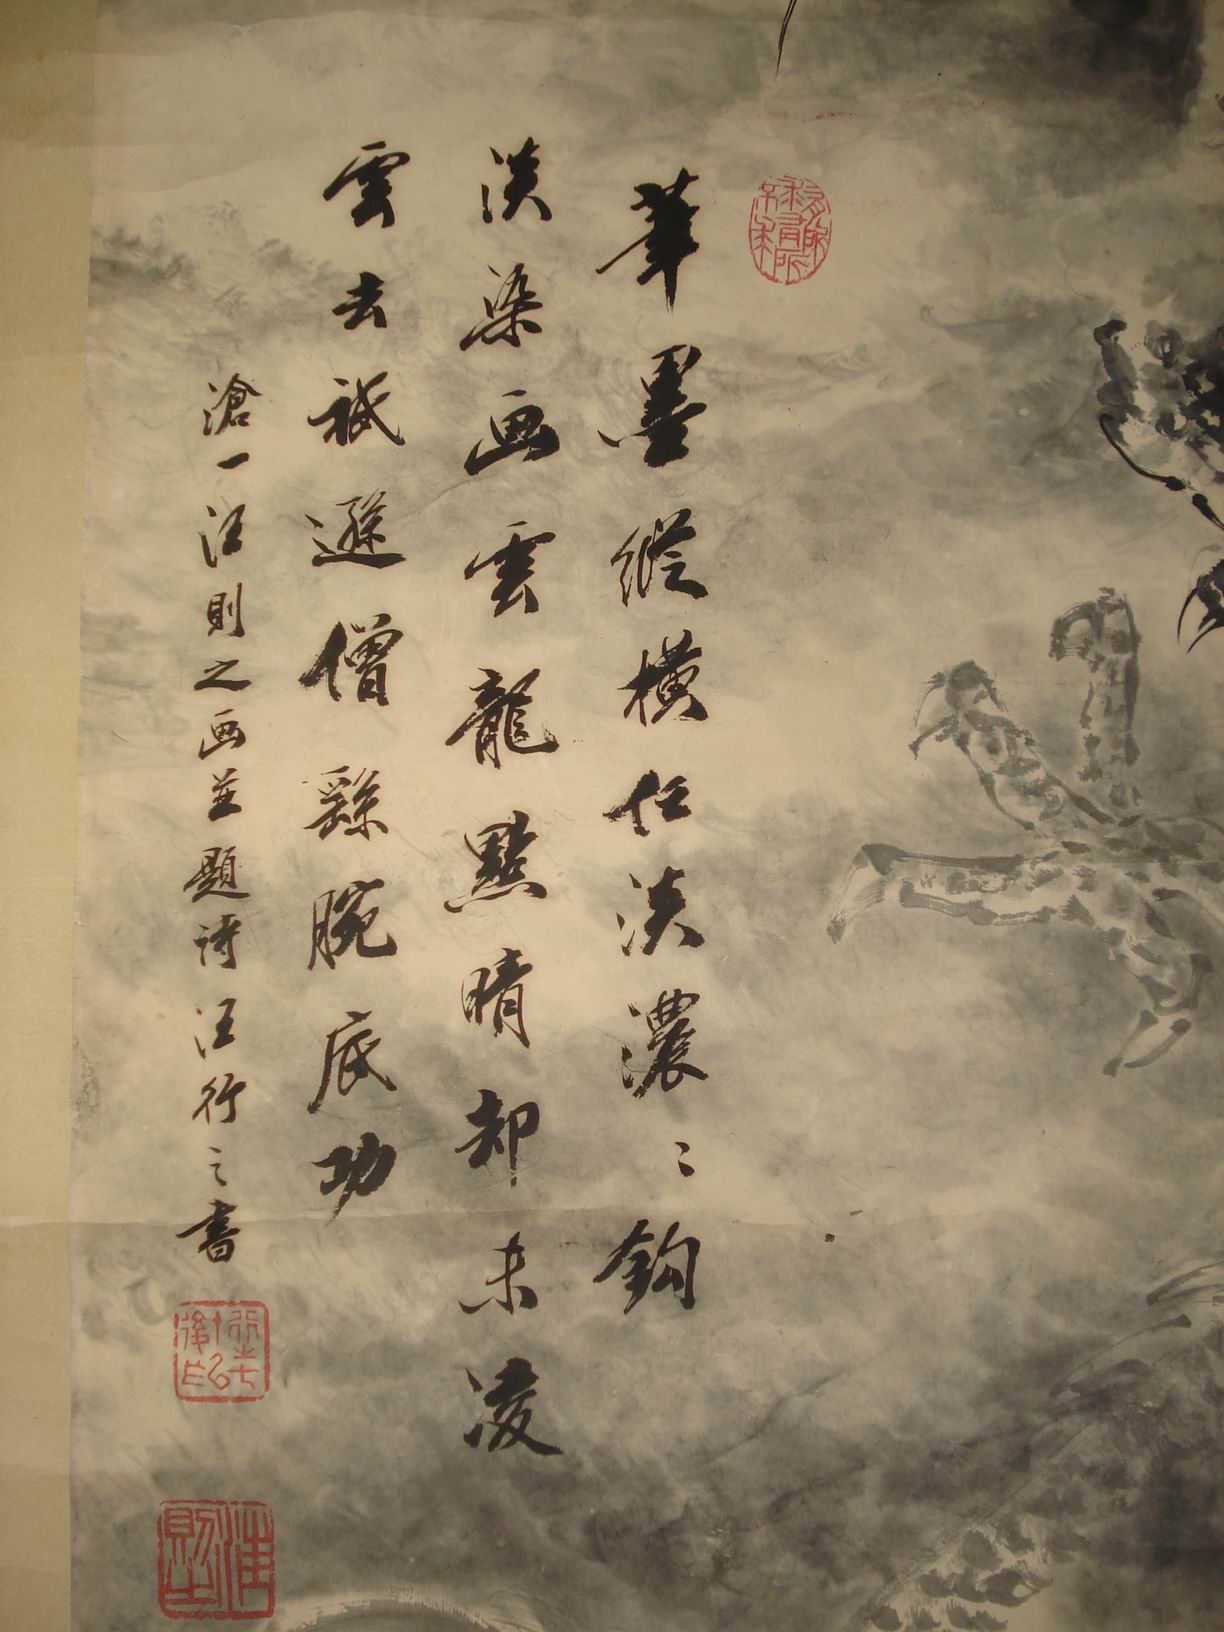 筆墨縱橫任淡濃〻鈎
淡染画雲龍點晴却未凌
雲去祇遜僧繇腕底功
滄一江則之画並題诗汪行之書